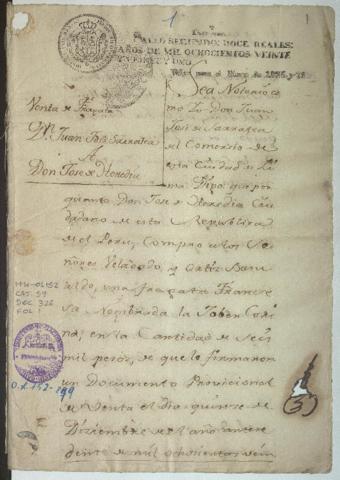 1
SELLO SEGUNDO: DOCE REALES:
AÑOS DE MIL OCHOCIENTOS VEINTE
Y VEINTE Y UNO
Sea Notorio co
Venta de Fragata
mo Yo Don Juan
D.n Juan José Sarratea
José de Sarratea
A
el Comercio de
Don Jose de Heredia
esta Ciudad de Li
ma Digo que por
quanto Don José de Heredia Ciu
dadano de esta Republica
del Peru, Compro a los Se
ñores
una fragata France
sa nombrada la Joben
en la Cantidad de Seis
mil pesos, de que le firmaron
un Documento Provicional
de Venta el dia quinze de
Diziembre del año antece
dente de mil ochocientos vein
CAT. 59
DOC. 326
FOL 1